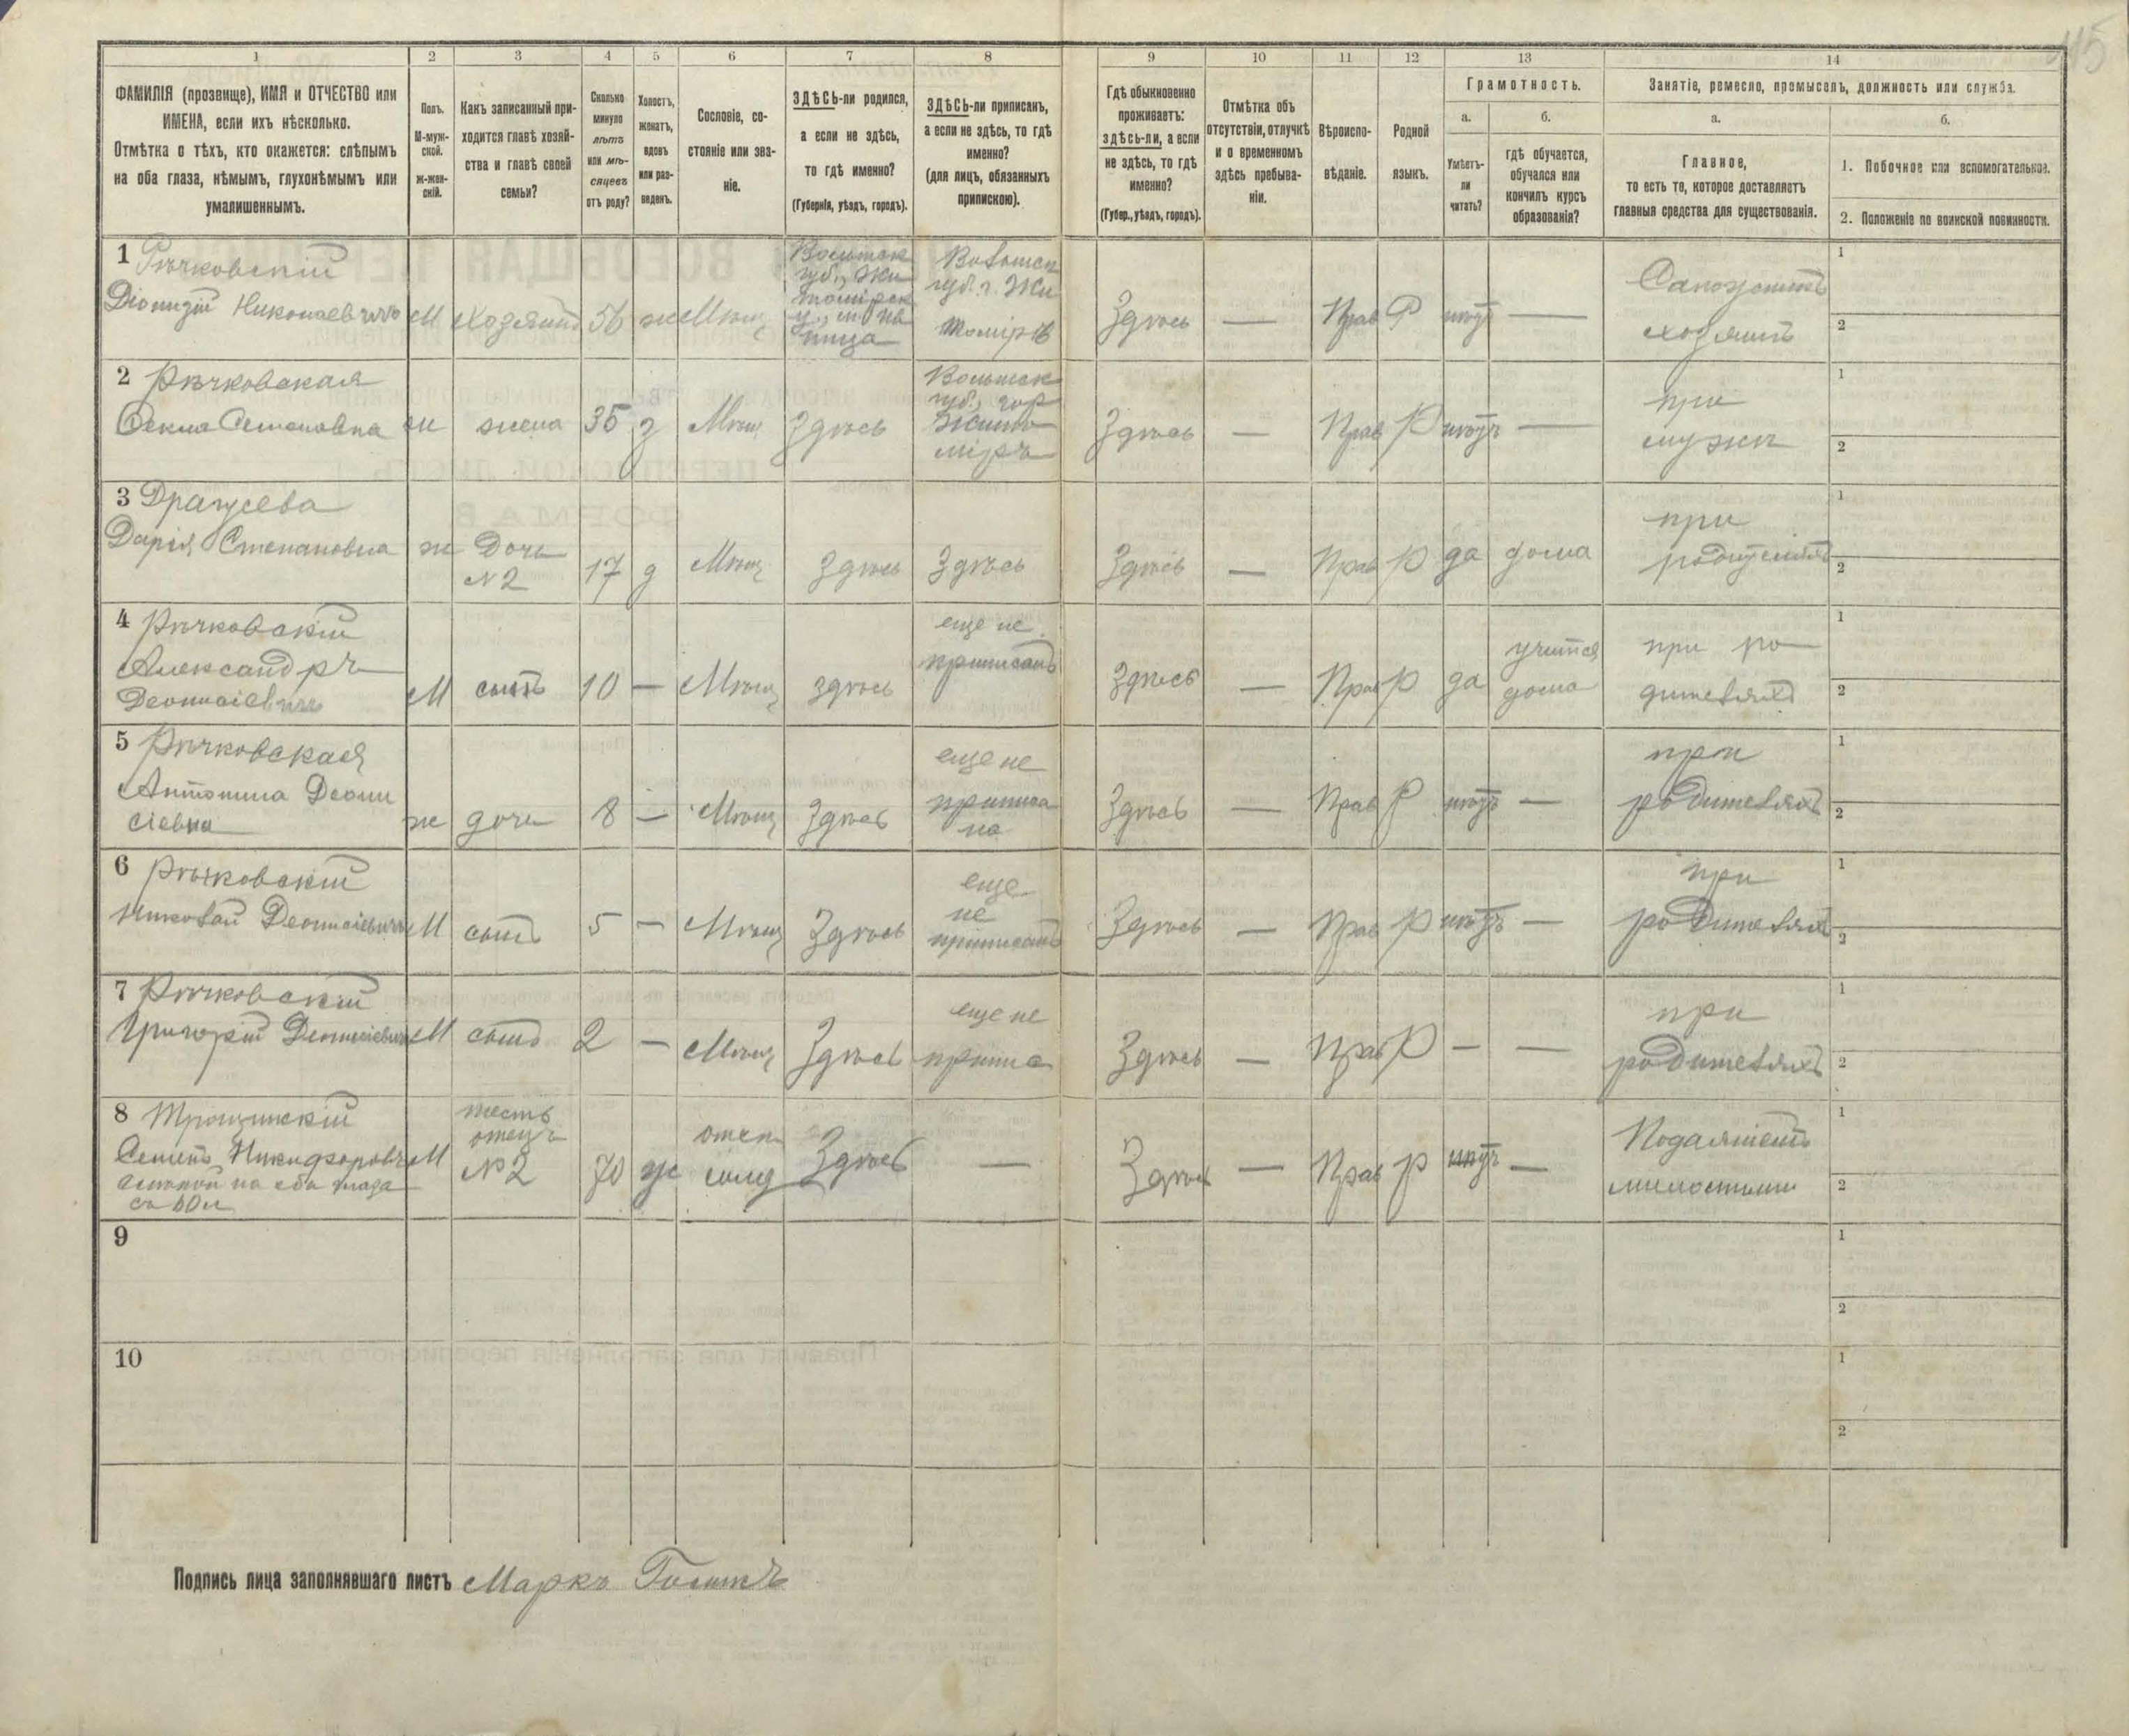 115
1 2 3 4 5 6 7 8 9 10 11 12 13 14
ФАМИЛІЯ (прозвище), ИМЯ и ОТЧЕСТВО или
ИМЕНА, если ихъ нѣсколько.
Отмѣтка о тѣхъ, кто окажется: слѣпымъ
на оба глаза, нѣмымъ, глухонѣмымъ или
умалишеннымъ.
Полъ.
М-муж-
ской.
ж-жен-
скій.
Какъ записанный при-
ходится главѣ хозяй-
ства и главѣ своей
семьи?
Сколько
минуло
лѣтъ
или мѣ-
сяцевъ
отъ роду?
Холостъ,
женатъ,
вдовъ
или раз-
веденъ.
Сословіе, со-
стояніе или зва-
ніе.
ЗДѢСЬ-ли родился,
а если не здѣсь,
то гдѣ именно?
(Губернія, уѣздъ, городъ).
ЗДѢСЬ-ли приписанъ,
а если не здѣсь, то гдѣ
именно?
(для лицъ, обязанныхъ
припискою).
Гдѣ обыкновенно
проживаетъ:
здѣсь-ли, а если
не здѣсь, то гдѣ
именно?
(Губер., уѣздъ, городъ).
Отмѣтка объ
отсутствіи, отлучкѣ
и о временномъ
здѣсь пребыва-
ніи.
Вѣроиспо-
вѣданіе.
Родной
языкъ.
Грамотность.
а.
Умѣетъ-
ли
читать?
б.
гдѣ обучается,
обучался или
кончилъ курсъ
образованія?
Занятіе, ремесло, промыселъ, должность или служба.
а.
Главное,
то есть то, которое доставляетъ
главныя средства для существованія.
б.
1. Побочное или вспомогательное.
2. Положеніе по воинской повинности.
1 Рѣчковскій
Діонизій Николаевичъ
М
Хозяинъ
56
ж
Мѣщ
Волынск
губ., Жи
томірск
у., м
ница
Волынск
губ. г. Жи
томірѣ
Здѣсь
—
Прав
Р
нѣтъ
—
Сапожникъ
хозяинъ
1
2
2 Рѣчковская
Фекла Семеновна
ж
жена
35
з
Мѣщ
Здѣсь
Волынск
губ., гор
Жито
міръ
Здѣсь
—
Прав
Р
нѣтъ
—
при
мужѣ
1
2
3 Драгусева
Дарія Степановна
ж
Дочь
№2
17
д
Мѣщ
Здѣсь
Здѣсь
Здѣсь
—
Прав
Р
да
дома
при
родителяхъ
1
2
4 Рѣчковскій
Александръ
Деонисіевичъ
М
сынъ
10
—
Мѣщ
здѣсь
еще не
приписанъ
Здѣсь
—
Прав
Р
да
учится
дома
при ро
дителяхъ
1
2
5 Рѣчковская
Антонина Деони
сіевна
ж
дочь
8
—
Мѣщ
Здѣсь
еще не
приписа
на
Здѣсь
—
Прав
Р
нѣтъ
—
при
родителяхъ
1
2
6 Рѣчковскій
Николай Деонисіевичъ
М
сынъ
5
—
Мѣщ
Здѣсь
еще
не
приписанъ
Здѣсь
—
Прав
Р
нѣтъ
—
при
родителяхъ
1
2
7 Рѣчковскій
Григорій Деонисіевичъ
М
сынъ
2
—
Мѣщ
Здѣсь
еще не
припис
Здѣсь
—
Прав
Р
—
—
при
родителяхъ
1
2
8 Трощинскій
Семенъ Никифоровъ
слѣпой на оба глаза
съ 60 л
М
тесть
отецъ
№2
70
ж
солд
Здѣсь
—
Здѣсь
—
Прав
Р
нѣтъ
—
Подаяніемъ
милостыни
1
2
9
1
2
10
1
2
Подпись лица заполнявшаго листъ Маркъ